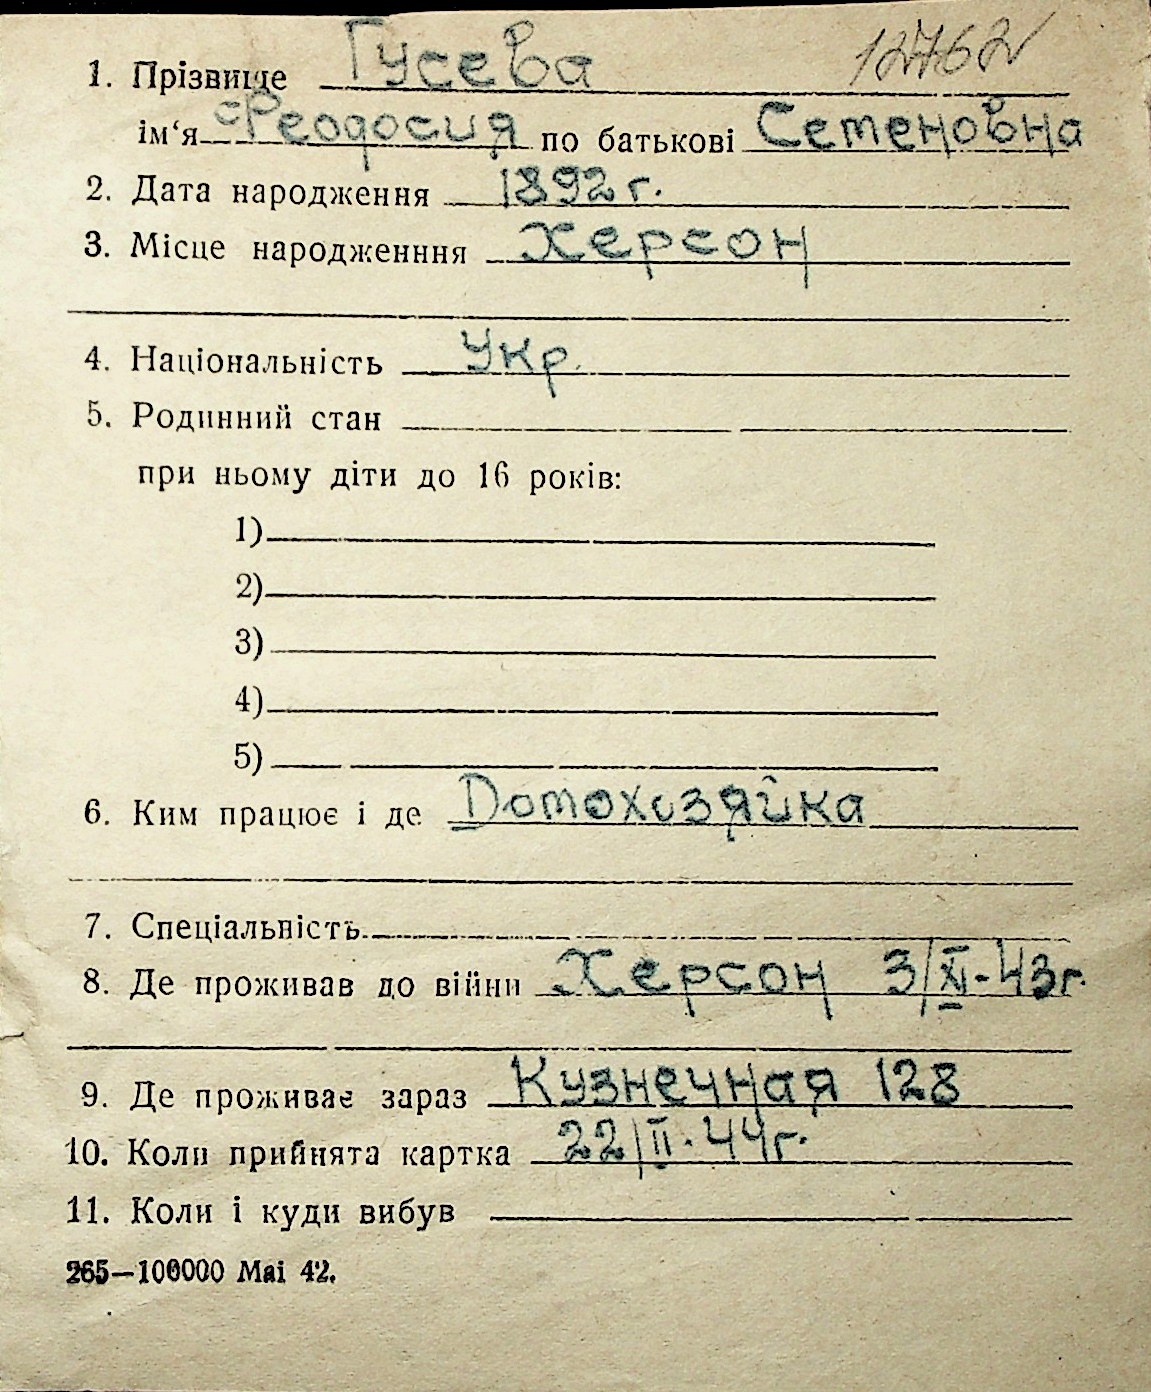 12762
1. Прізвище Гусева
ім‘я Феодосия по батькові Семеновна
2. Дата народження 1892 г.
3. Місце народженння Херсон
4. Національність Укр.
5. Родинний стан
при ньому діти до 16 років:
1)
2)
3)
4)
5)
6. Ким працює і де Домохозяйка
7. Спеціальність
8. Де проживав до війни Херсон 3/XI-43г.
9. Де проживає зараз Кузнечная 128
10. Коли прийнята картка 22/II-44г.
11. Коли і куди вибув
265—100000 Mai 42.